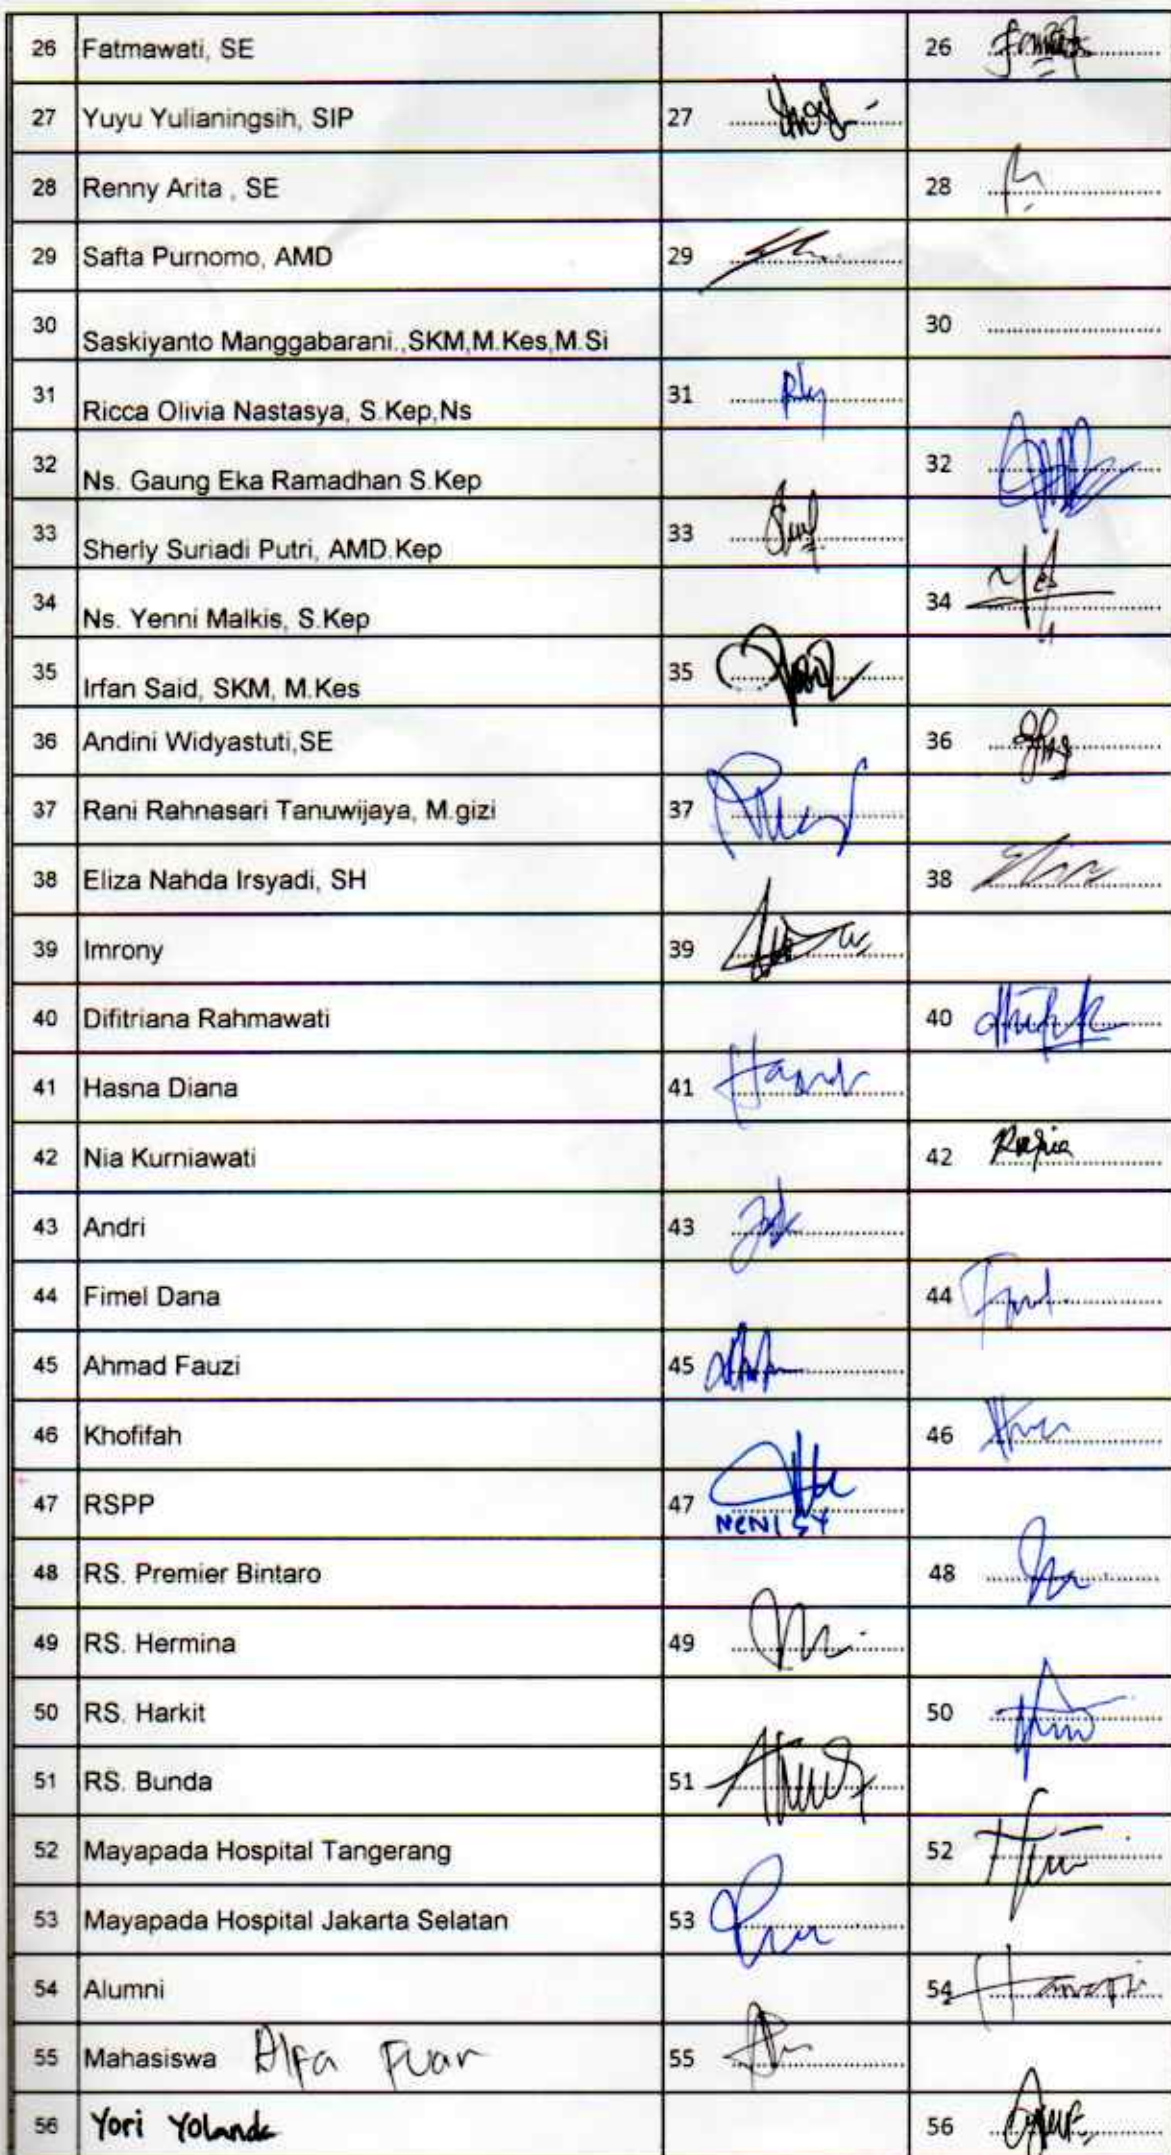 26 Fatmawati, SE 26
27 Yuyu Yulianingsih, SIP 27
28 Renny Arita , SE 28
29 Safta Purnomo, AMD 29
30 Saskiyanto Manggabarani.,SKM,M.Kes,M.Si 30
31 Ricca Olivia Nastasya, S.Kep,Ns 31
32 Ns. Gaung Eka Ramadhan S.Kep 32
33 Sherly Suriadi Putri, AMD.Kep 33
34 Ns. Yenni Malkis, S.Kep 34
35 Irfan Said, SKM, M.Kes 35
36 Andini Widyastuti,SE 36
37 Rani Rahnasari Tanuwijaya, M.gizi 37
38 Eliza Nahda Irsyadi, SH 38
39 Imrony 39
40 Difitriana Rahmawati 40
41 Hasna Diana 41
42 Nia Kurniawati 42
43 Andri 43
44 Fimel Dana 44
45 Ahmad Fauzi 45
46 Khofifah 46
47 RSPP 47
48 RS. Premier Bintaro 48
49 RS. Hermina 49
50 RS. Harkit 50
51 RS. Bunda 51
52 Mayapada Hospital Tangerang 52
53 Mayapada Hospital Jakarta Selatan 53
54 Alumni 54
55 Mahasiswa Alfa 55
56 Yori Yolanda 56